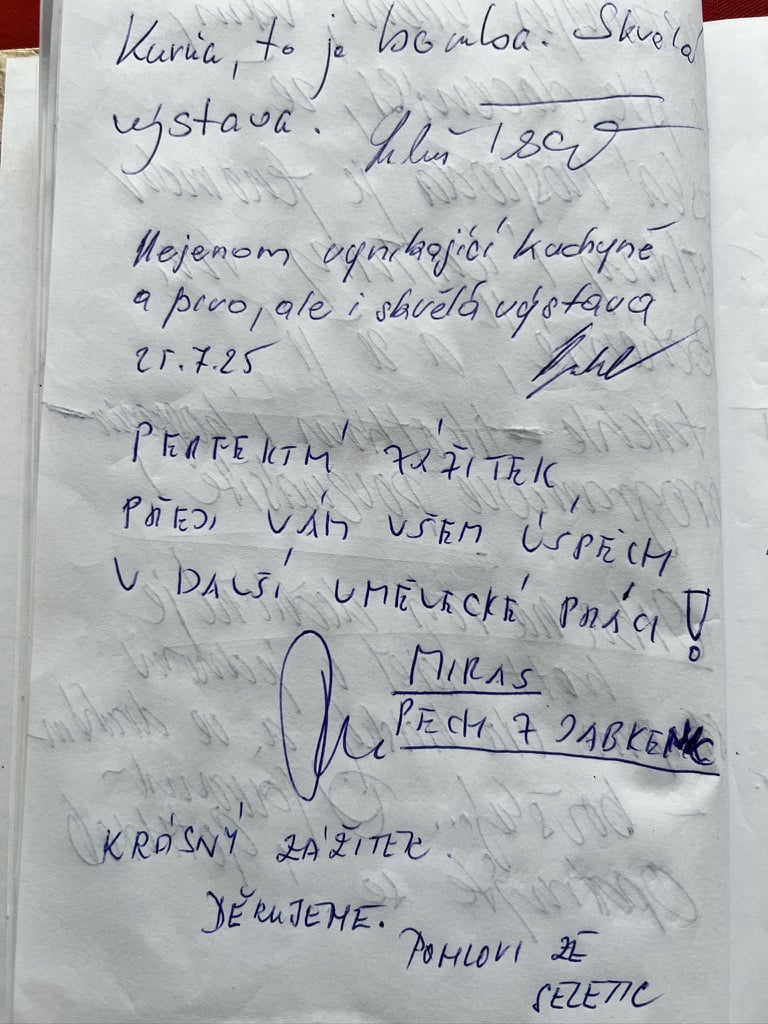 Kurňa, to je bomba. Skvělá
výstava.
Nejenom vynikající kuchyně
a pivo, ale i skvělá výstava
25.7.25
PERFEKTNÍ ZÁŽITEK
PŘEJI VÁM VŠEM ÚSPĚCH
V DALŠÍ UMĚLECKÉ PRÁCI!
MIRAS
PECH Z JABKENIC
KRÁSNÝ ZÁŽITEK.
DĚKUJEME.
POHLOVI ZE
SEZETIC